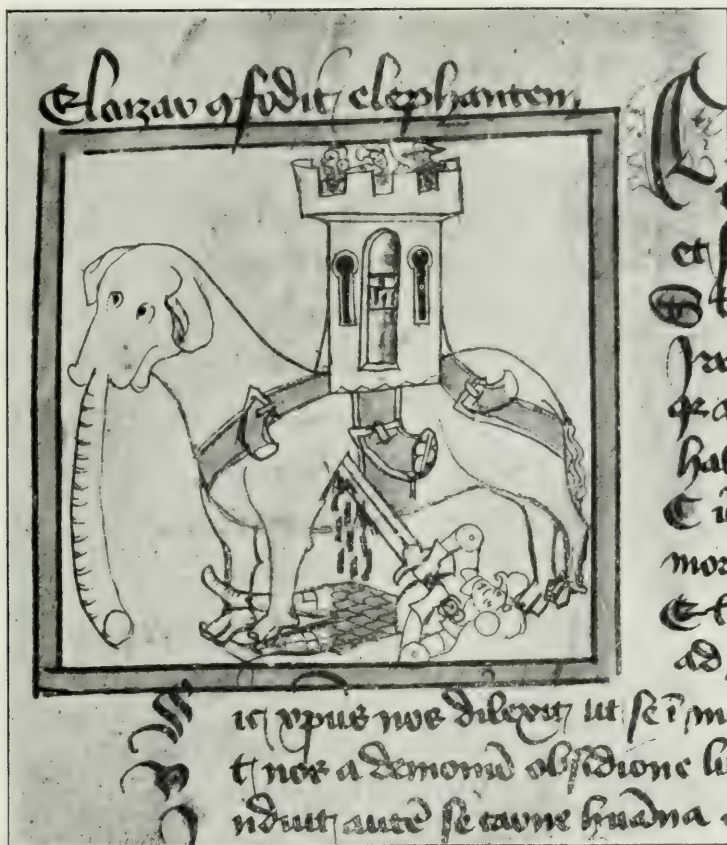 Eleazar 9fodit elephantem
et
hab
mor
Et
ad
ic xpus nos dilexit ut se ī m
t nos a demonū obsidione li
nduit autē se carne humana